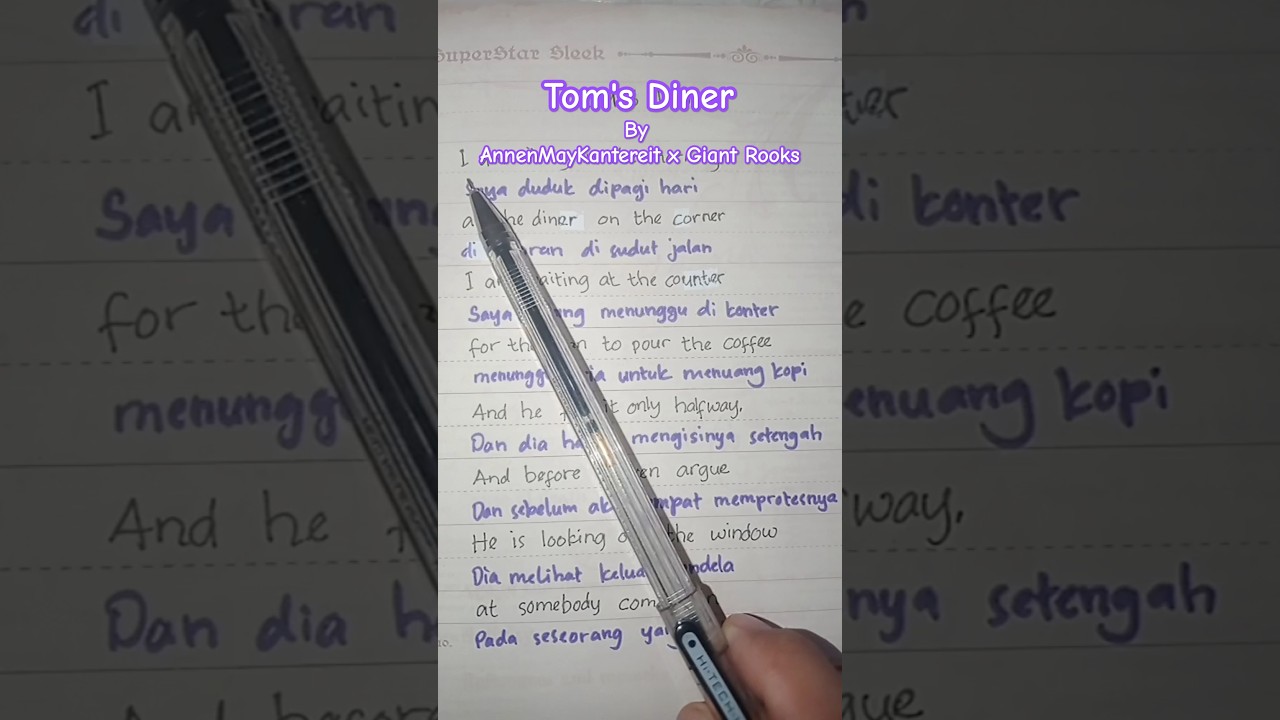 SuperStar Sleek
Tom's Diner
By
I AnnenMayKantereit x Giant Rooks
Saya duduk dipagi hari
he diner on the corner
di ran di sudut jalan
I a aiting at the counter
Saya ng menunggu di konter
for th n to pour the coffee
menungg ia untuk menuang kopi
And he it only halfway.
Dan dia ha mengisinya setengah
And before en argue
Dan sebelum ak mpat memprotesnya
He is looking o the window
Dia melihat kelua ndela
at somebody com
Pada seseorang ya
Hi-TECH